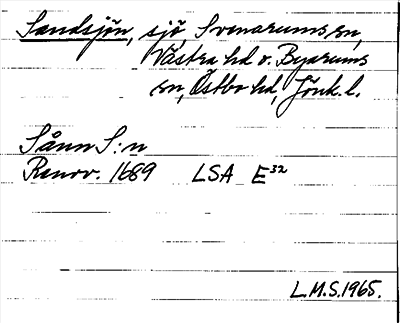 Sandsjön, sjö, Svenarums sn,
Västra hd o. Byarums
sn, Östbo hd, Jönk. l.
Sånn S:n
Renov. 1689 LSA E32
L.M.S. 1965.